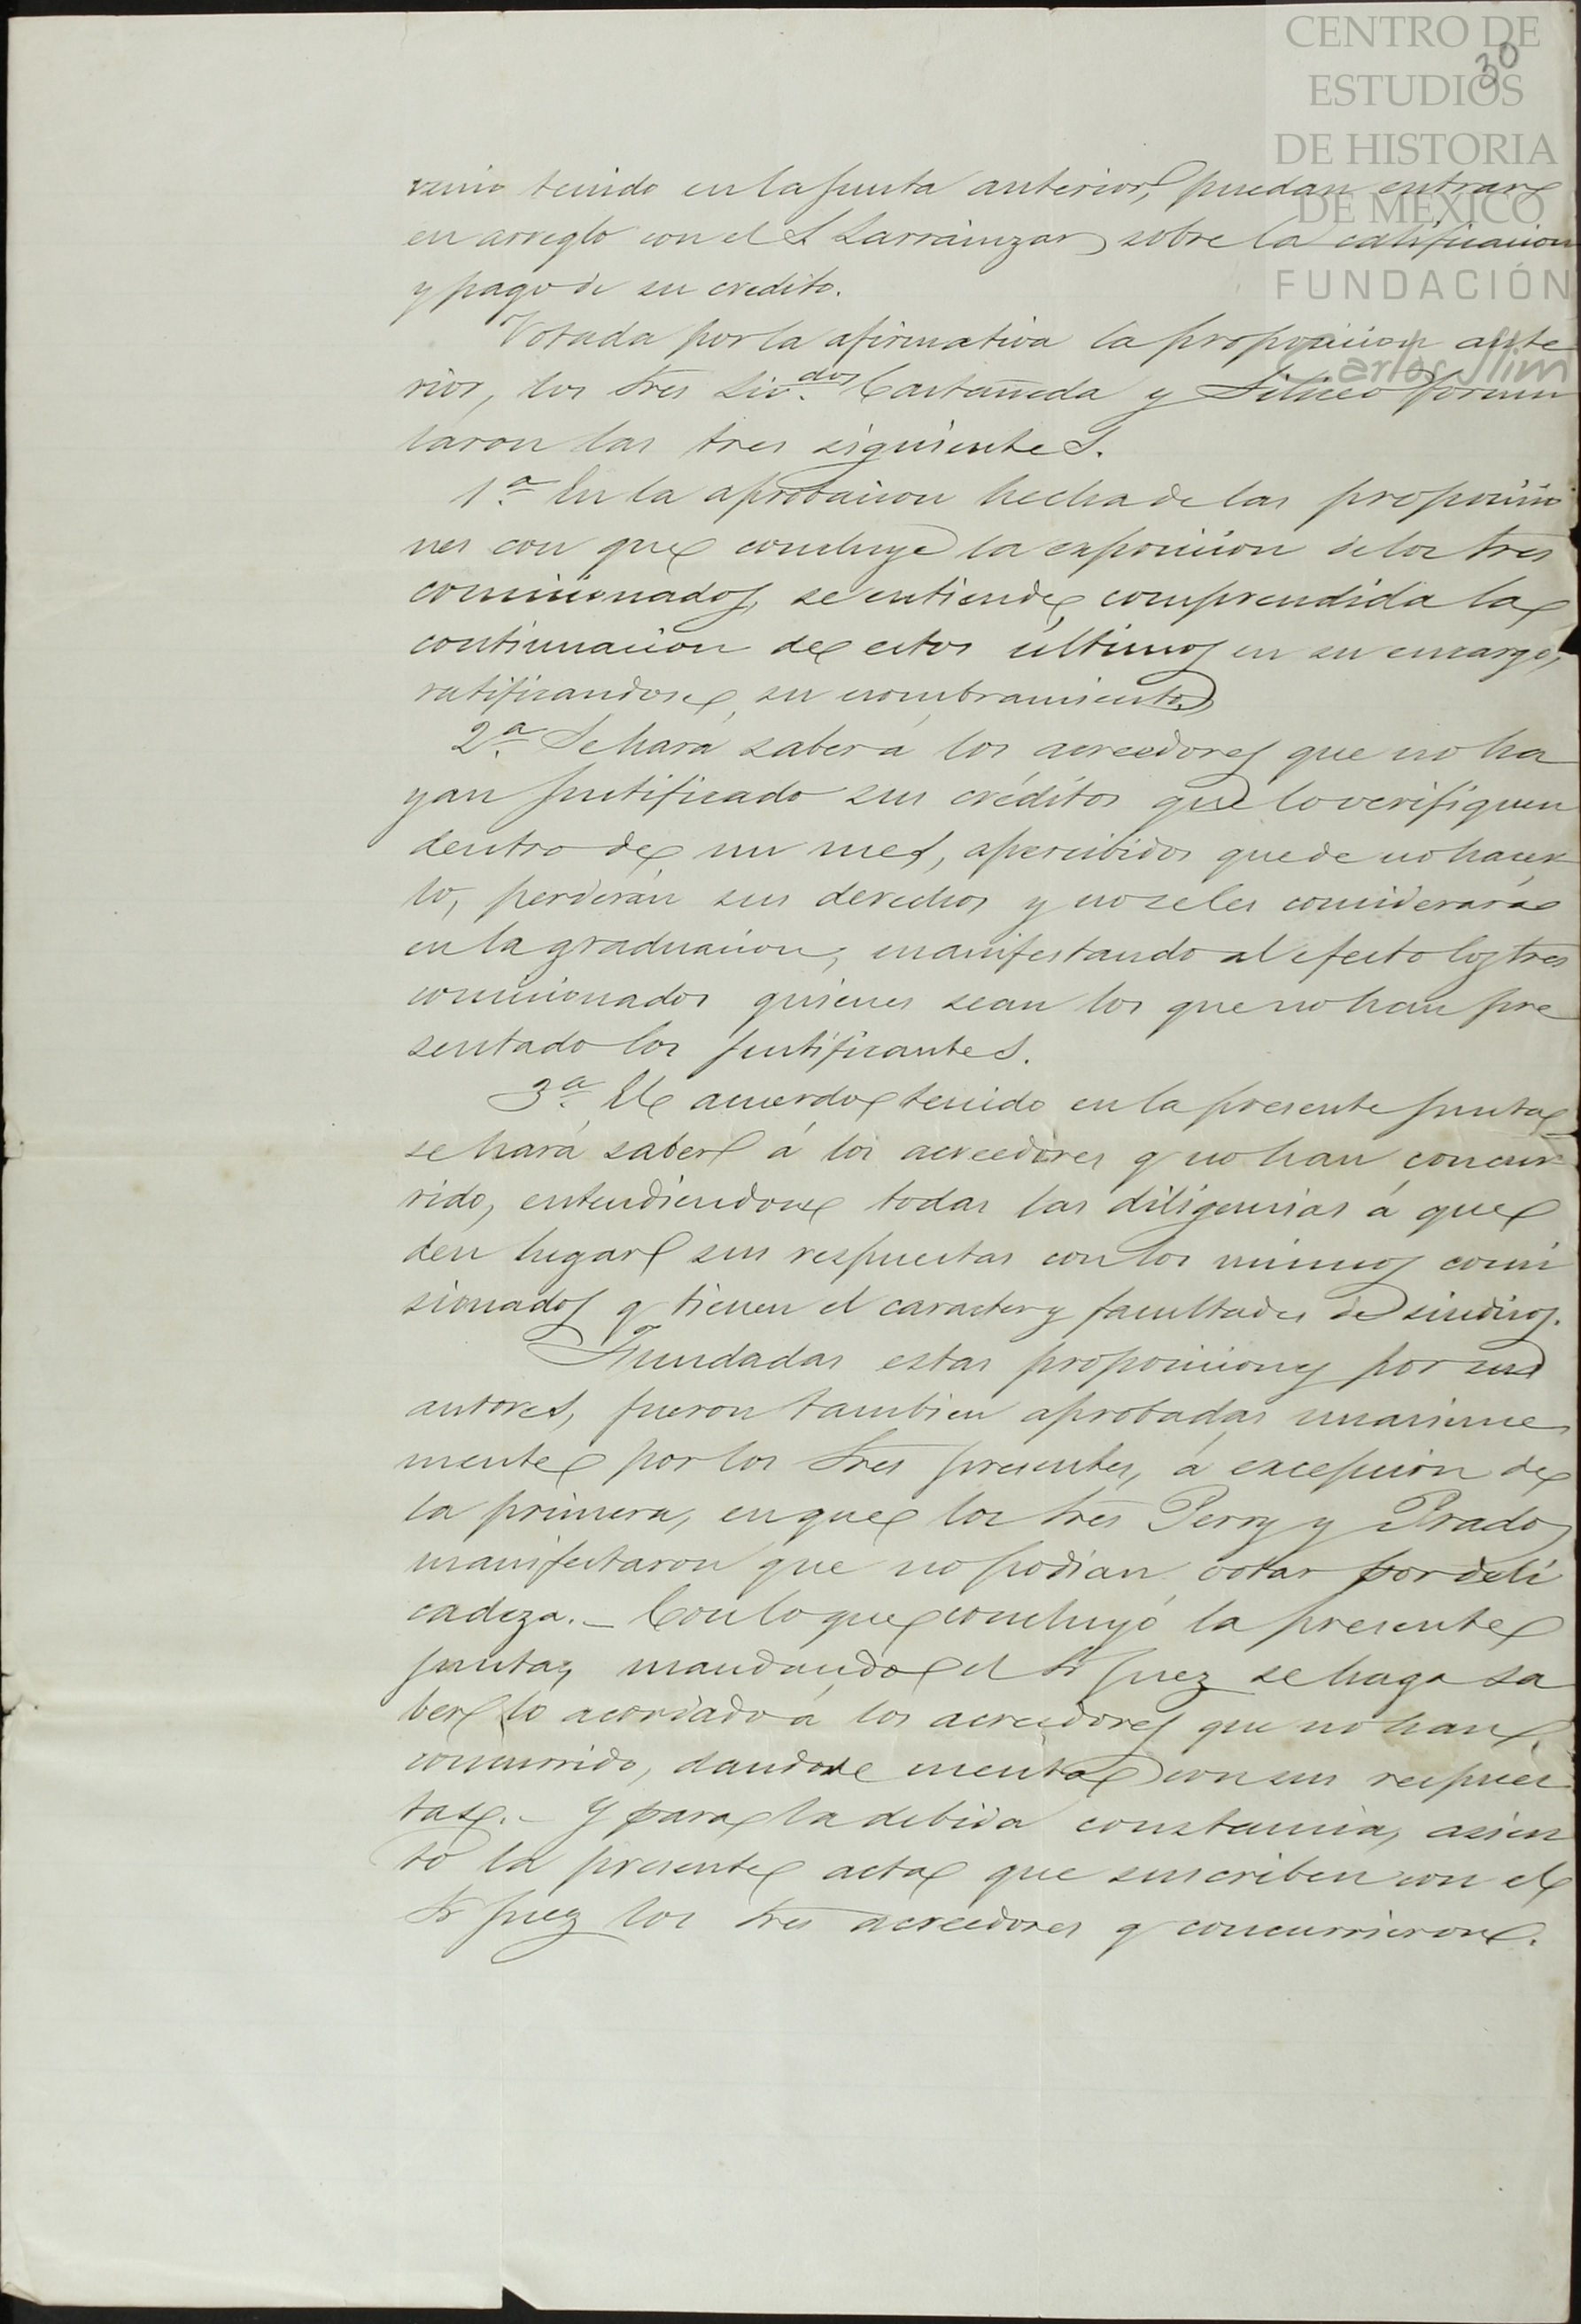 CENTRO DE
ESTUDIOS
DE HISTORIA
DE MÉXICO
FUNDACIÓN
Carlos Slim
30
venio tenido en la junta anterior, puedan entrar
en arreglo con el S Larráinzar sobre la calificacion
y pago de su credito.
Votada por la afirmativa la proposicion ante
rior, los Sres Liv.dos Castañeda y Siliceo formu
laron las tres siguientes.
1.a En la aprobacion hecha de las proposicio
nes con que concluye la exposicion de los Sres
comisionados, se entiende comprendida la
continuacion de estos ultimos en su encargo,
ratificandose su nombramiento
2.a Se hará saber a los acreedores que no ha
yan justificado sus créditos que lo verifiquen
dentro de un mes, apercibidos que de no hacer
lo, perderán sus derechos y no se les considerará
en la graduacion, manifestando al efecto los Sres
comisionados quienes sean los que no han pre
sentado los justificantes.
3.a El acuerdo tenido en la presente junta
se hará saber á los acreedores q no han concur
rido, entendiendose todas las diligencias á que
den lugar sus respuestas con los mismos comi
sionados q tienen el caracter y facultades de sindicos.
Fundadas estas proposiciones por sus
autores, fueron tambien aprobadas unanime
mente por los Sres presentes, á excepcion de
la primera, en que los Sres Perry y Prado
manifestaron que no podian votar por deli
cadeza. – Con lo que concluyó la presente
junta, mandando el Sr Juez se haga sa
ber lo acordado á los acreedores que no han
concurrido, dandose cuenta con sus respues
tas. – Y para la debida constancia, asien
to la presente acta que suscriben con el
Sr Juez los Sres acreedores q concurrieron.